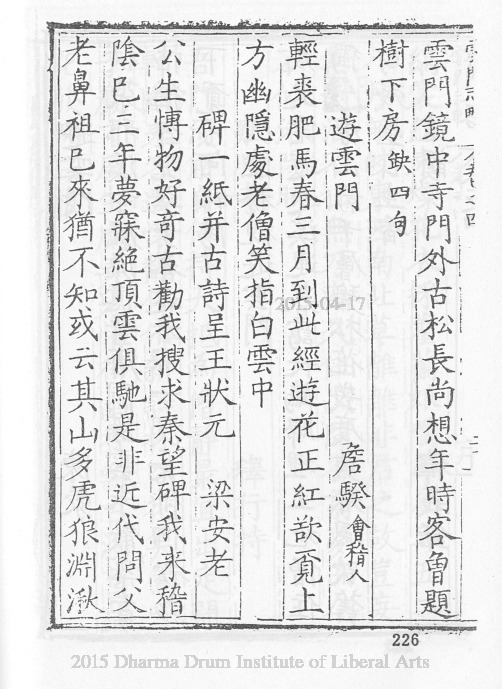 雲門鏡中寺門外古松長尚想年時客曾題
樹下房 缺四句
遊雲門 詹騤 會稽人
輕裘肥馬春三月到此經遊花正紅欲覓上
方幽隱處老僧笑指白雲中
碑一紙并古詩呈王狀元 梁安老
公生愽物好奇古勸我搜求秦望碑我来稽
陰巳三年夢寐絶頂雲俱馳是非近代問父
老鼻祖巳來猶不知或云其山多虎狼淵湫
2015-04-17
226
2015 Dharma Drum Institute of Liberal Arts